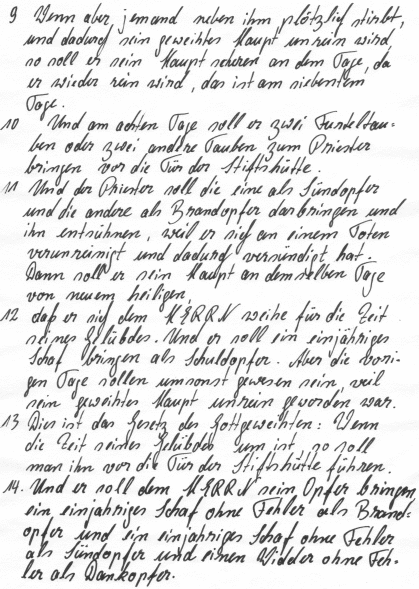 9 Wenn aber jemand neben ihm plötzlich stirbt,
und dadurch sein geweihtes Haupt unrein wird,
so soll er sein Haupt scheren an dem Tage, da
er wieder rein wird, das ist am siebentem
Tage.
10 Und am achten Tage soll er zwei Turteltau=
ben oder zwei andere Tauben zum Priester
bringen vor die Tür der Stiftshütte.
11 Und der Priester soll die eine als Sündopfer
und die andere als Brandopfer darbringen und
ihn entsühnen, weil er sich an einem Toten
verunreinigt und dadurch versündigt hat.
Dann soll er sein Haupt an demselben Tage
von neuem heiligen,
12 daß er sich dem HERRN weihe für die Zeit
seines Gelübdes. Und er soll ein einjähriges
Schaf bringen als Schuldopfer. Aber die vori-
gen Tage sollen umsonst gewesen sein, weil
sein geweihtes Haupt unrein geworden war.
13 Dies ist das Gesetz des Gottgeweihten: Wenn
die Zeit seines Gelübdes um ist, so soll
man ihn vor die Tür der Stiftshütte führen.
14. Und er soll dem HERRN sein Opfer bringen,
ein einjähriges Schaf ohne Fehler als Brand=
opfer und ein einjähriges Schaf ohne Fehler
als Sündopfer und einen Widder ohne Feh-
ler als Dankopfer.